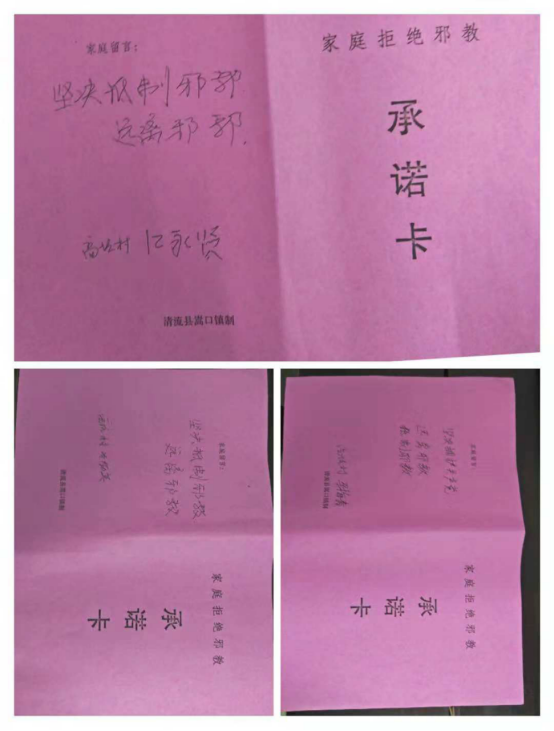 家庭留言：
坚决抵制邪教
远离邪教.
江永贤
清流县嵩口镇制
家庭拒绝邪教
承诺卡
家庭留言：
坚决抵制邪教
远离邪教
清流县嵩口镇制
家庭拒绝邪教
承诺卡
家庭留言：
远离邪教
抵制邪教
清流县嵩口镇制
家庭拒绝邪教
承诺卡